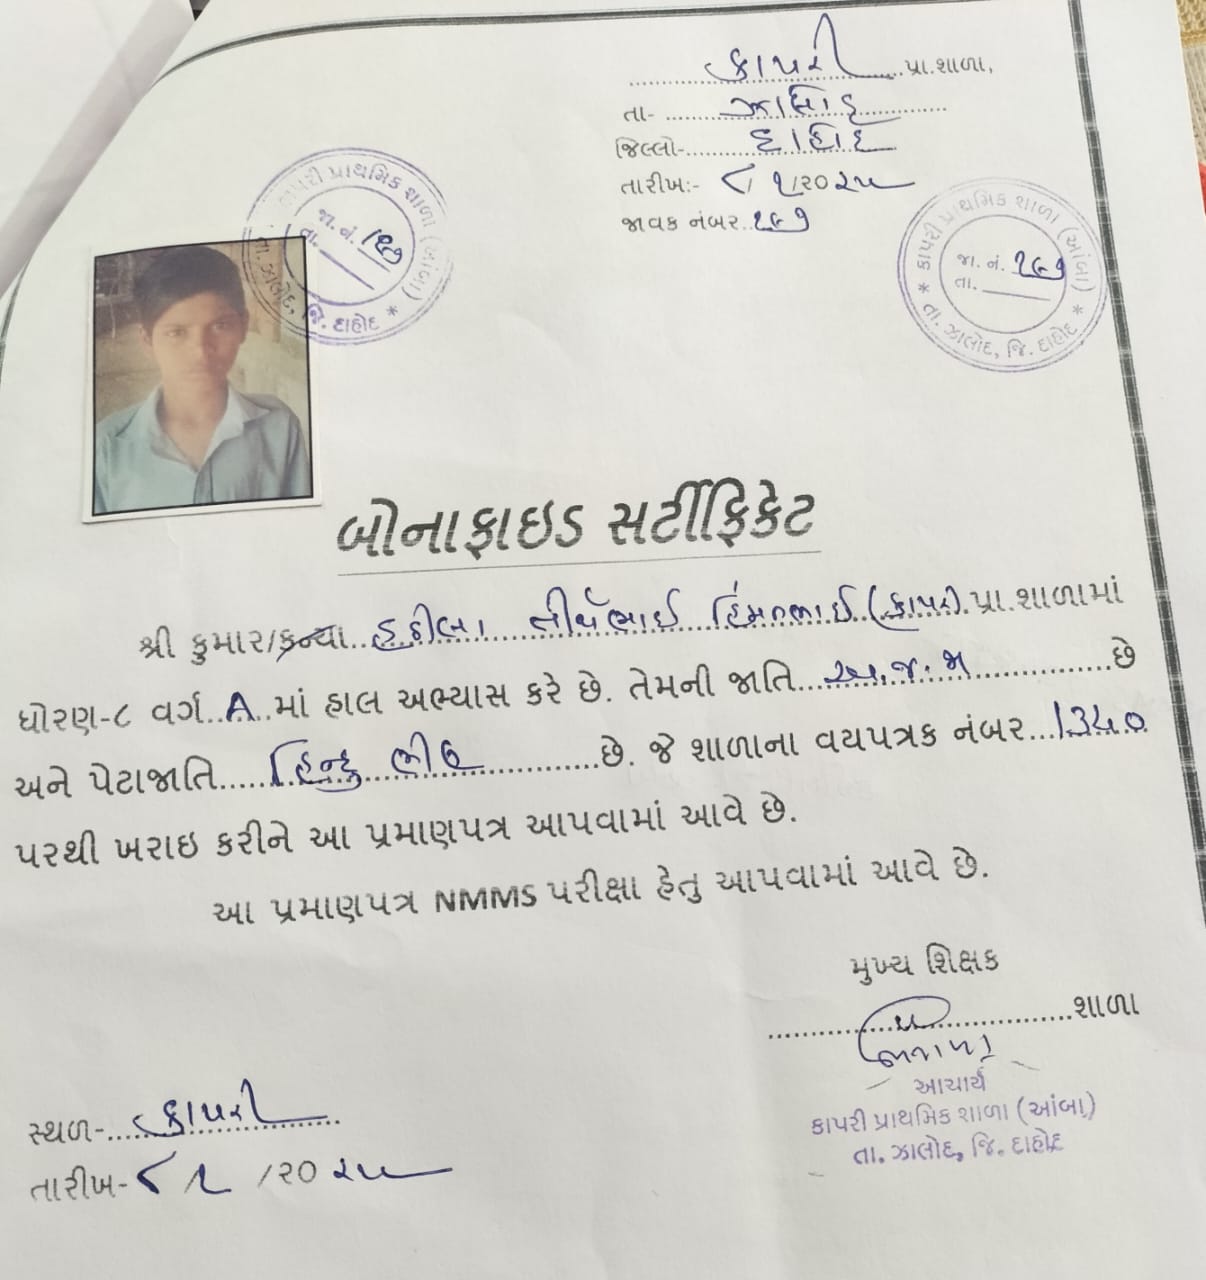 કાપરી પ્રા.શાળા,
તા- ઝાલોદ
જિલ્લો- દાહોદ
તારીખ:- ૮/૧/૨૦૨૫
જાવક નંબર. ૧૬૭
કાપરી પ્રાથમિક શાળા (આંબા) * તા. ઝાલોદ, જિ. દાહોદ *
જા. નં. ૧૬૭
તા.
* કાપરી પ્રાથમિક શાળા (આંબા) * તા. ઝાલોદ, જિ. દાહોદ
જા. નં. ૧૬૭
તા.
બોનાફાઇડ સર્ટીફિકેટ
શ્રી કુમાર/કન્યા.. હઠીલા તીર્થભાઈ હિંમતભાઈ (કાપરી) પ્રા.શાળામાં
ધોરણ-૮ વર્ગ..A..માં હાલ અભ્યાસ કરે છે. તેમની જાતિ અ.જ.જા છે
અને પેટાજાતિ હિન્દુ ભીલ છે. જે શાળાના વયપત્રક નંબર...૧૩૬૦
પરથી ખરાઇ કરીને આ પ્રમાણપત્ર આપવામાં આવે છે.
આ પ્રમાણપત્ર NMMS પરીક્ષા હેતુ આપવામાં આવે છે.
મુખ્ય શિક્ષક
શાળા
આચાર્ય
કાપરી પ્રાથમિક શાળા (આંબા)
તા. ઝાલોદ, જિ. દાહોદ
સ્થળ- કાપરી
તારીખ- ૮/૧/૨૦૨૫